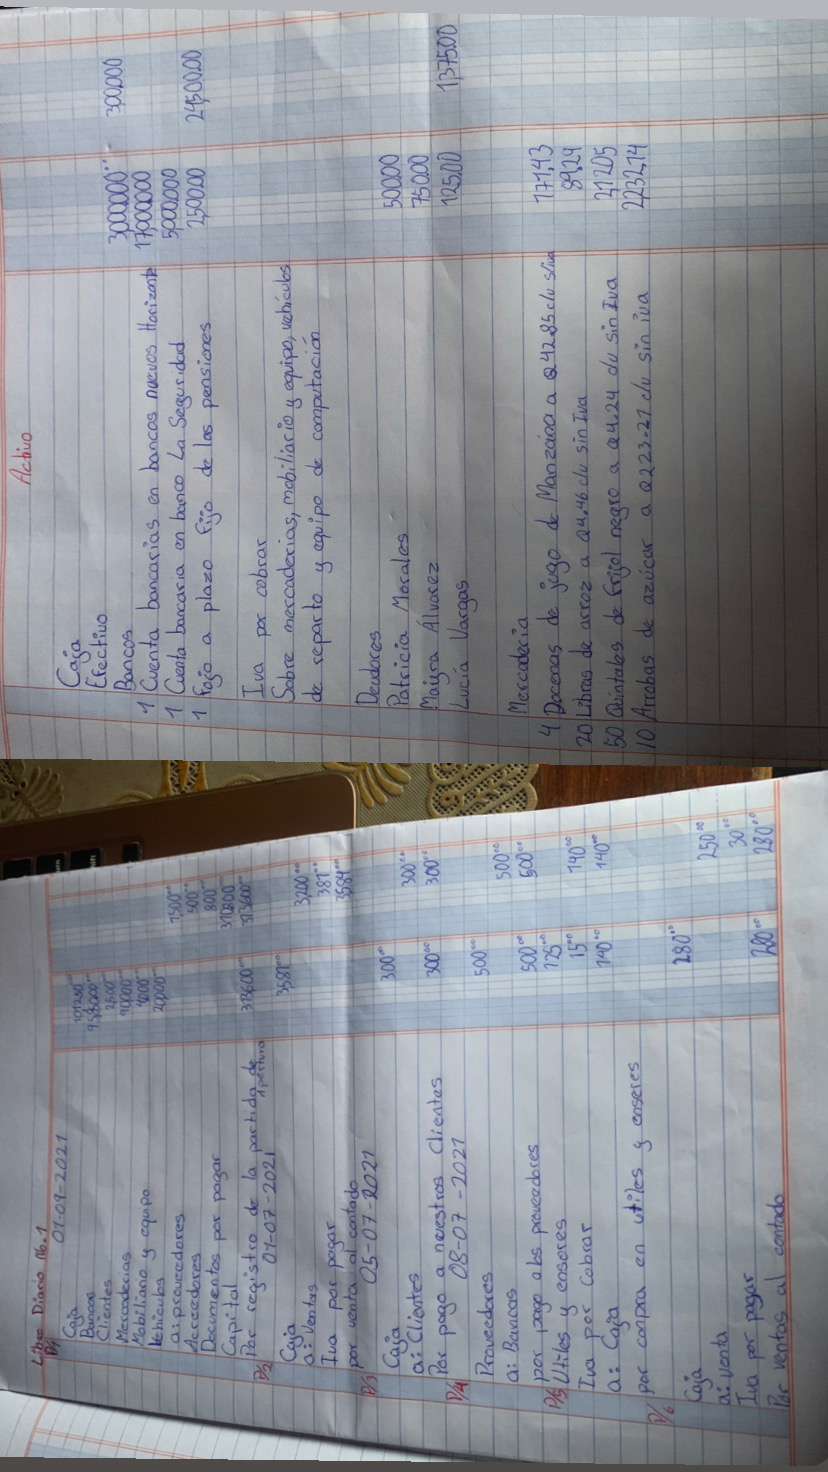 Activo
Caja
Efectivo 300000.00 300000
Bancos
1 Cuenta bancarias en bancos nuevos Horizonte 17,000.00
1 Cuenta bancaria en banco La Seguridad 5000.00
1 Fojo a plazo Fijo de las pensiones 2,500.00 24,500.00
Iva por cobrar
Sobre mercaderias, mobiliario y equipo, vehiculos
de reparto y equipo de computación
Deudores
Patricia Morales 500.00
Mayra Álvarez 750.00
Lucía Vargas 125.00 1,375.00
Mercaderia
4 Docenas de jugo de Manzana a Q42.85 c/u s/iva 171.43
20 Libras de arroz a Q4.46 c/u sin Iva 89.24
50 Quintales de Frijol negro a Q4.24 c/u sin Iva 212.05
10 Arrobas de azúcar a Q223.21 c/u sin iva 2,232.14
Libro Diario No. 1
P1 01-09-2021
Caja
Bancos
Clientes 2,500
Mercaderias
Mobiliario y equipo
Vehiculos
a: proveedores 1500.00
Acreedores 500.00
Documentos por pagar 800.00
Capital
Por registro de la partida de Apertura
P/2 01-07-2021
Caja
a: Ventas 3,200.00
Iva por pagar
por venta al contado
P/3 05-07-2021
Caja 300.00
a: Clientes 300.00
Por pago a nuestros Clientes 300.00 300.00
P/4 08-07-2021
Proveedores 500.00
a: Bancos 500.00
por pago a los proveedores 500.00 500.00
P/5 Utiles y enseres 125.00
Iva por Cobrar 15.00
a: Caja 140.00
por compra en utiles y enseres 140.00 140.00
P/6
Caja 280.00
a: Venta 250.00
Iva por pagar 30.00
Por ventas al contado 280.00 280.00